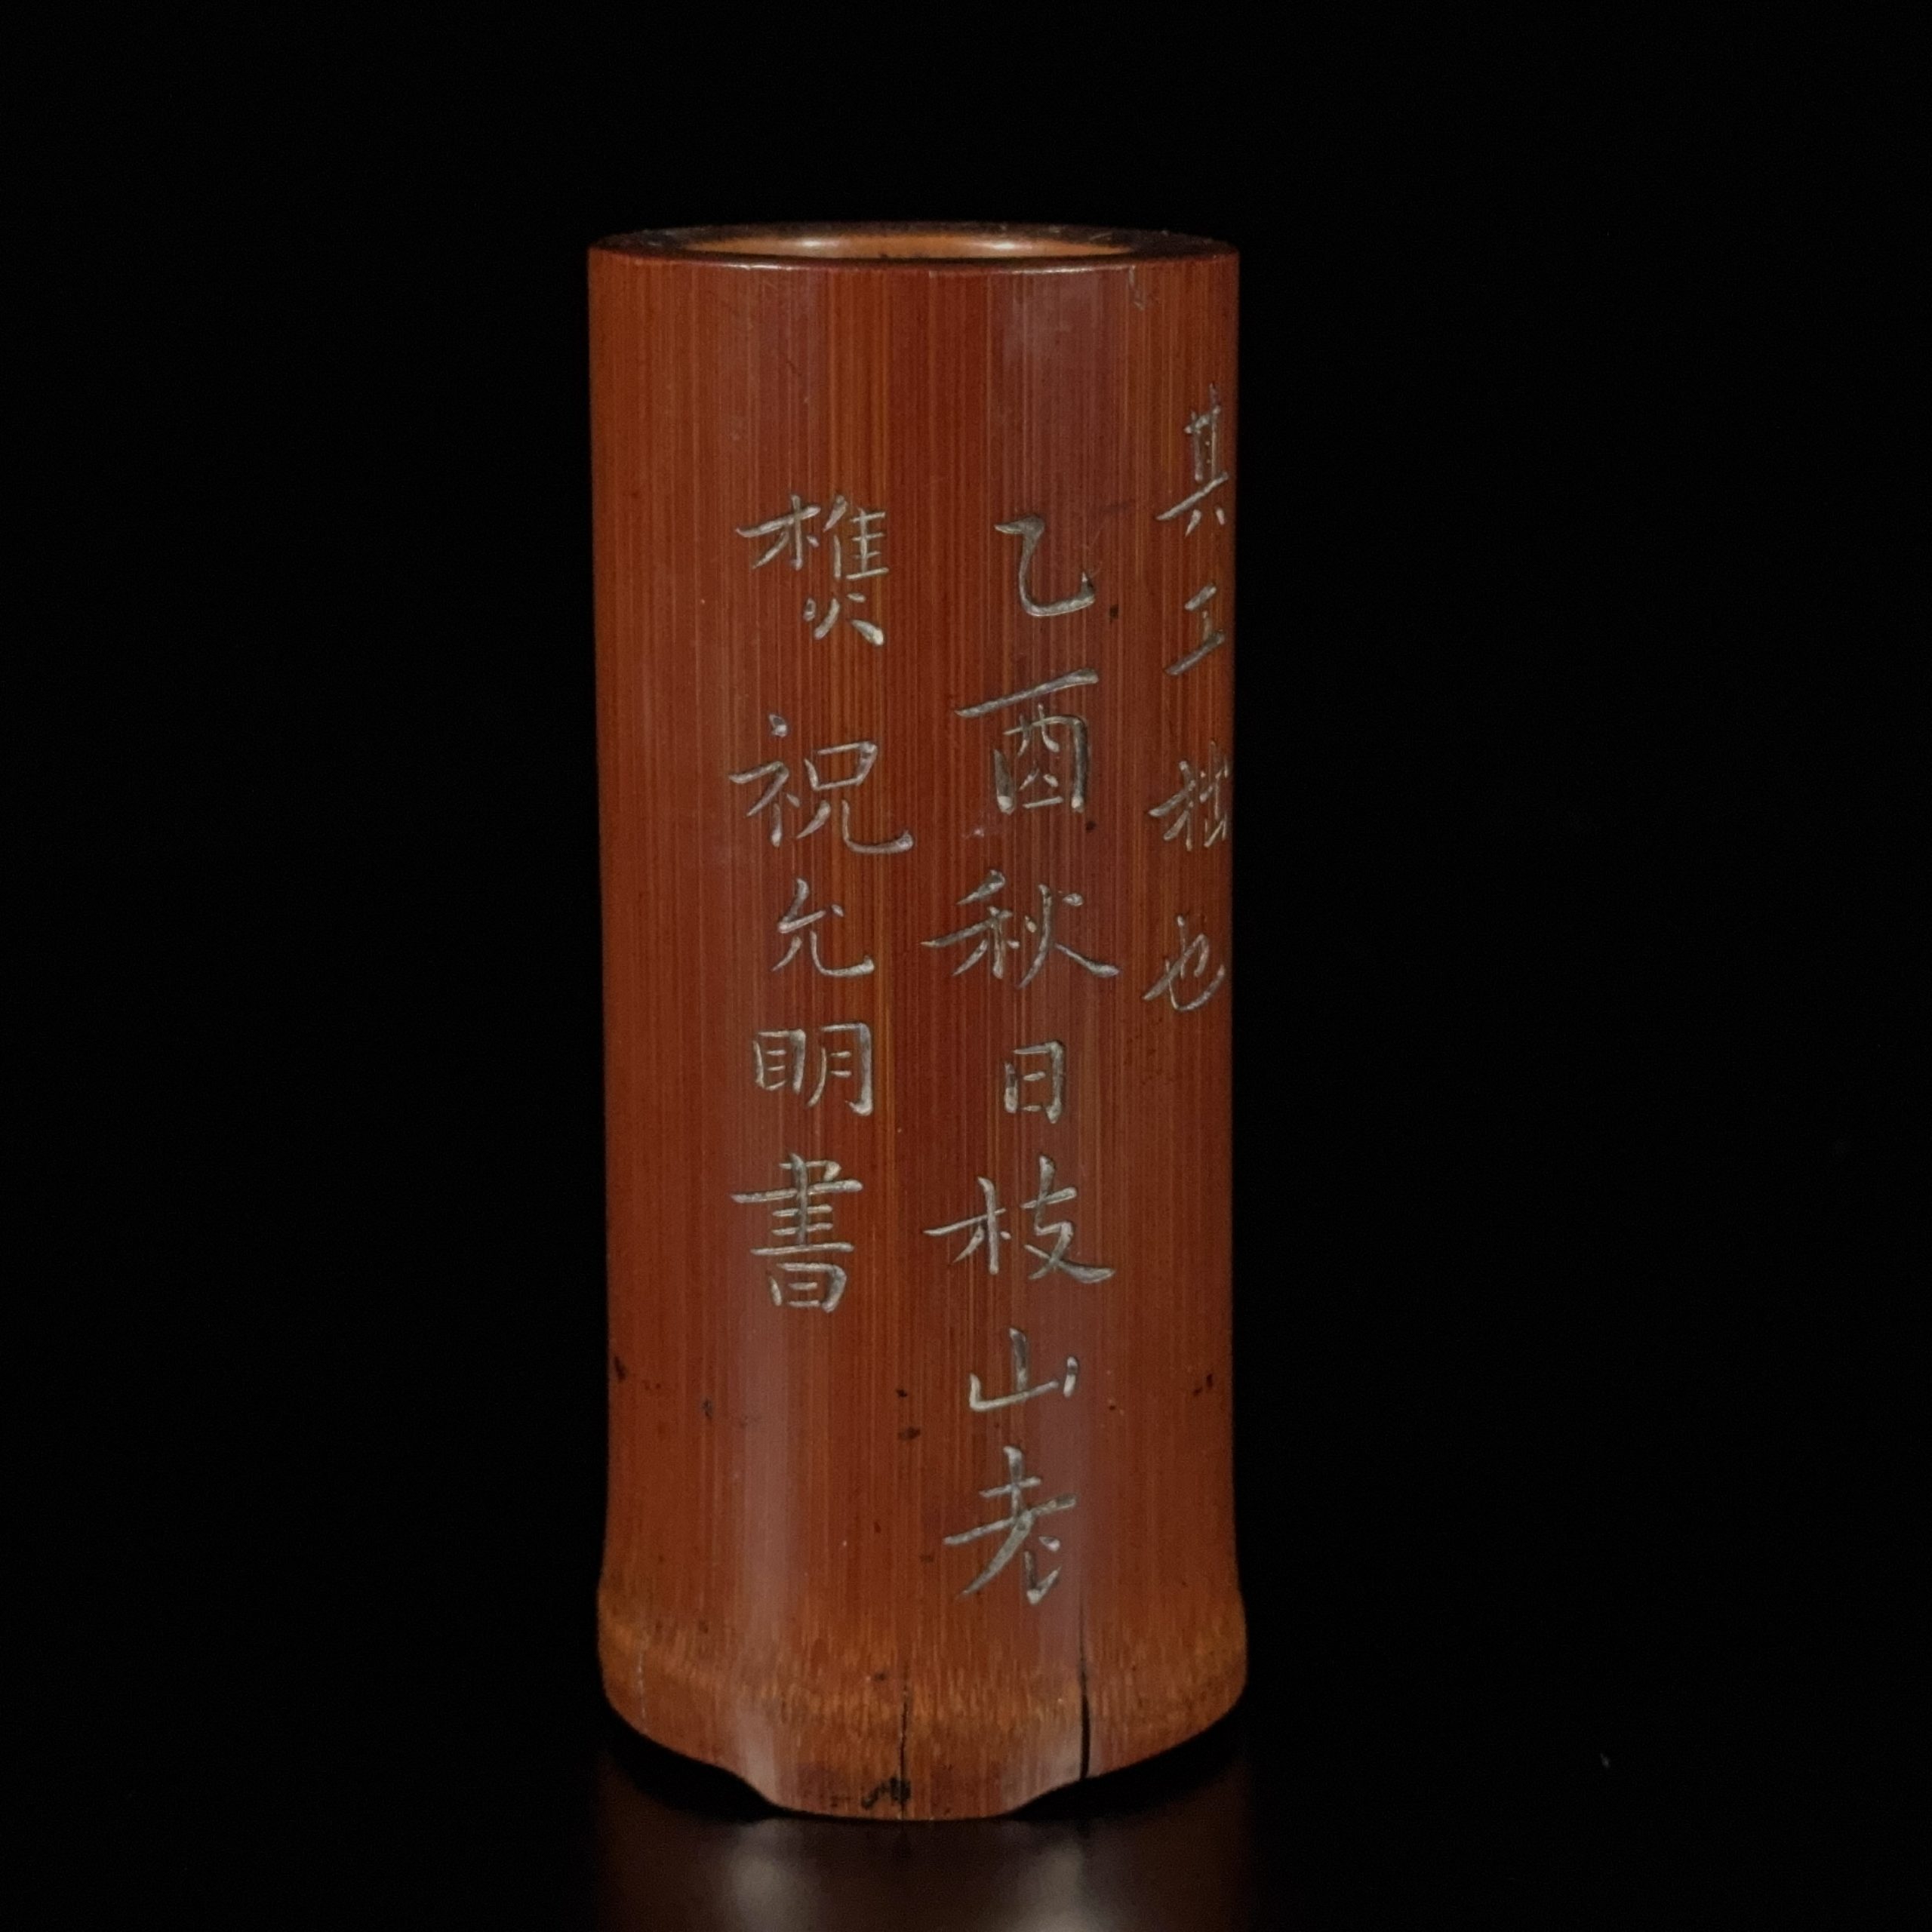 其工拙也
乙酉秋日枝山老
樵祝允明書